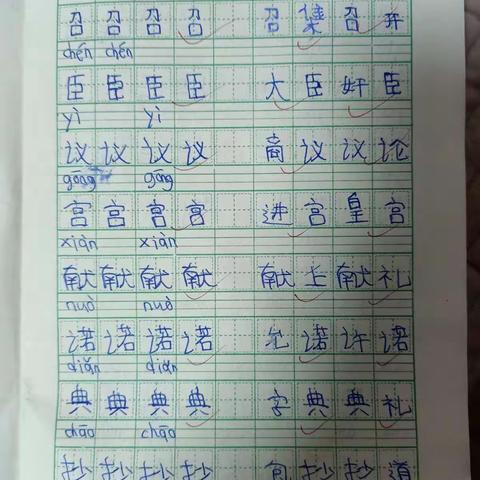 召 召 召 召 召 集 召 开
chén chén
臣 臣 臣 臣 大 臣 奸 臣
yì yì
议 议 议 议 商 议 议 论
gōng gōng
宫 宫 宫 宫 进 宫 皇 宫
xiàn xiàn
献 献 献 献 献 上 献 礼
nuò nuò
诺 诺 诺 诺 允 诺 许 诺
diǎn diǎn
典 典 典 典 字 典 典 礼
chāo chāo
抄 抄 抄 抄 包 抄 抄 道